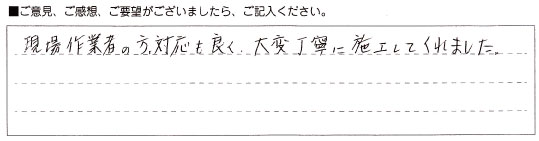 ■ご意見、ご感想、ご要望がございましたら、ご記入ください。
現場作業者の方、対応も良く、大変丁寧に施工してくれました。